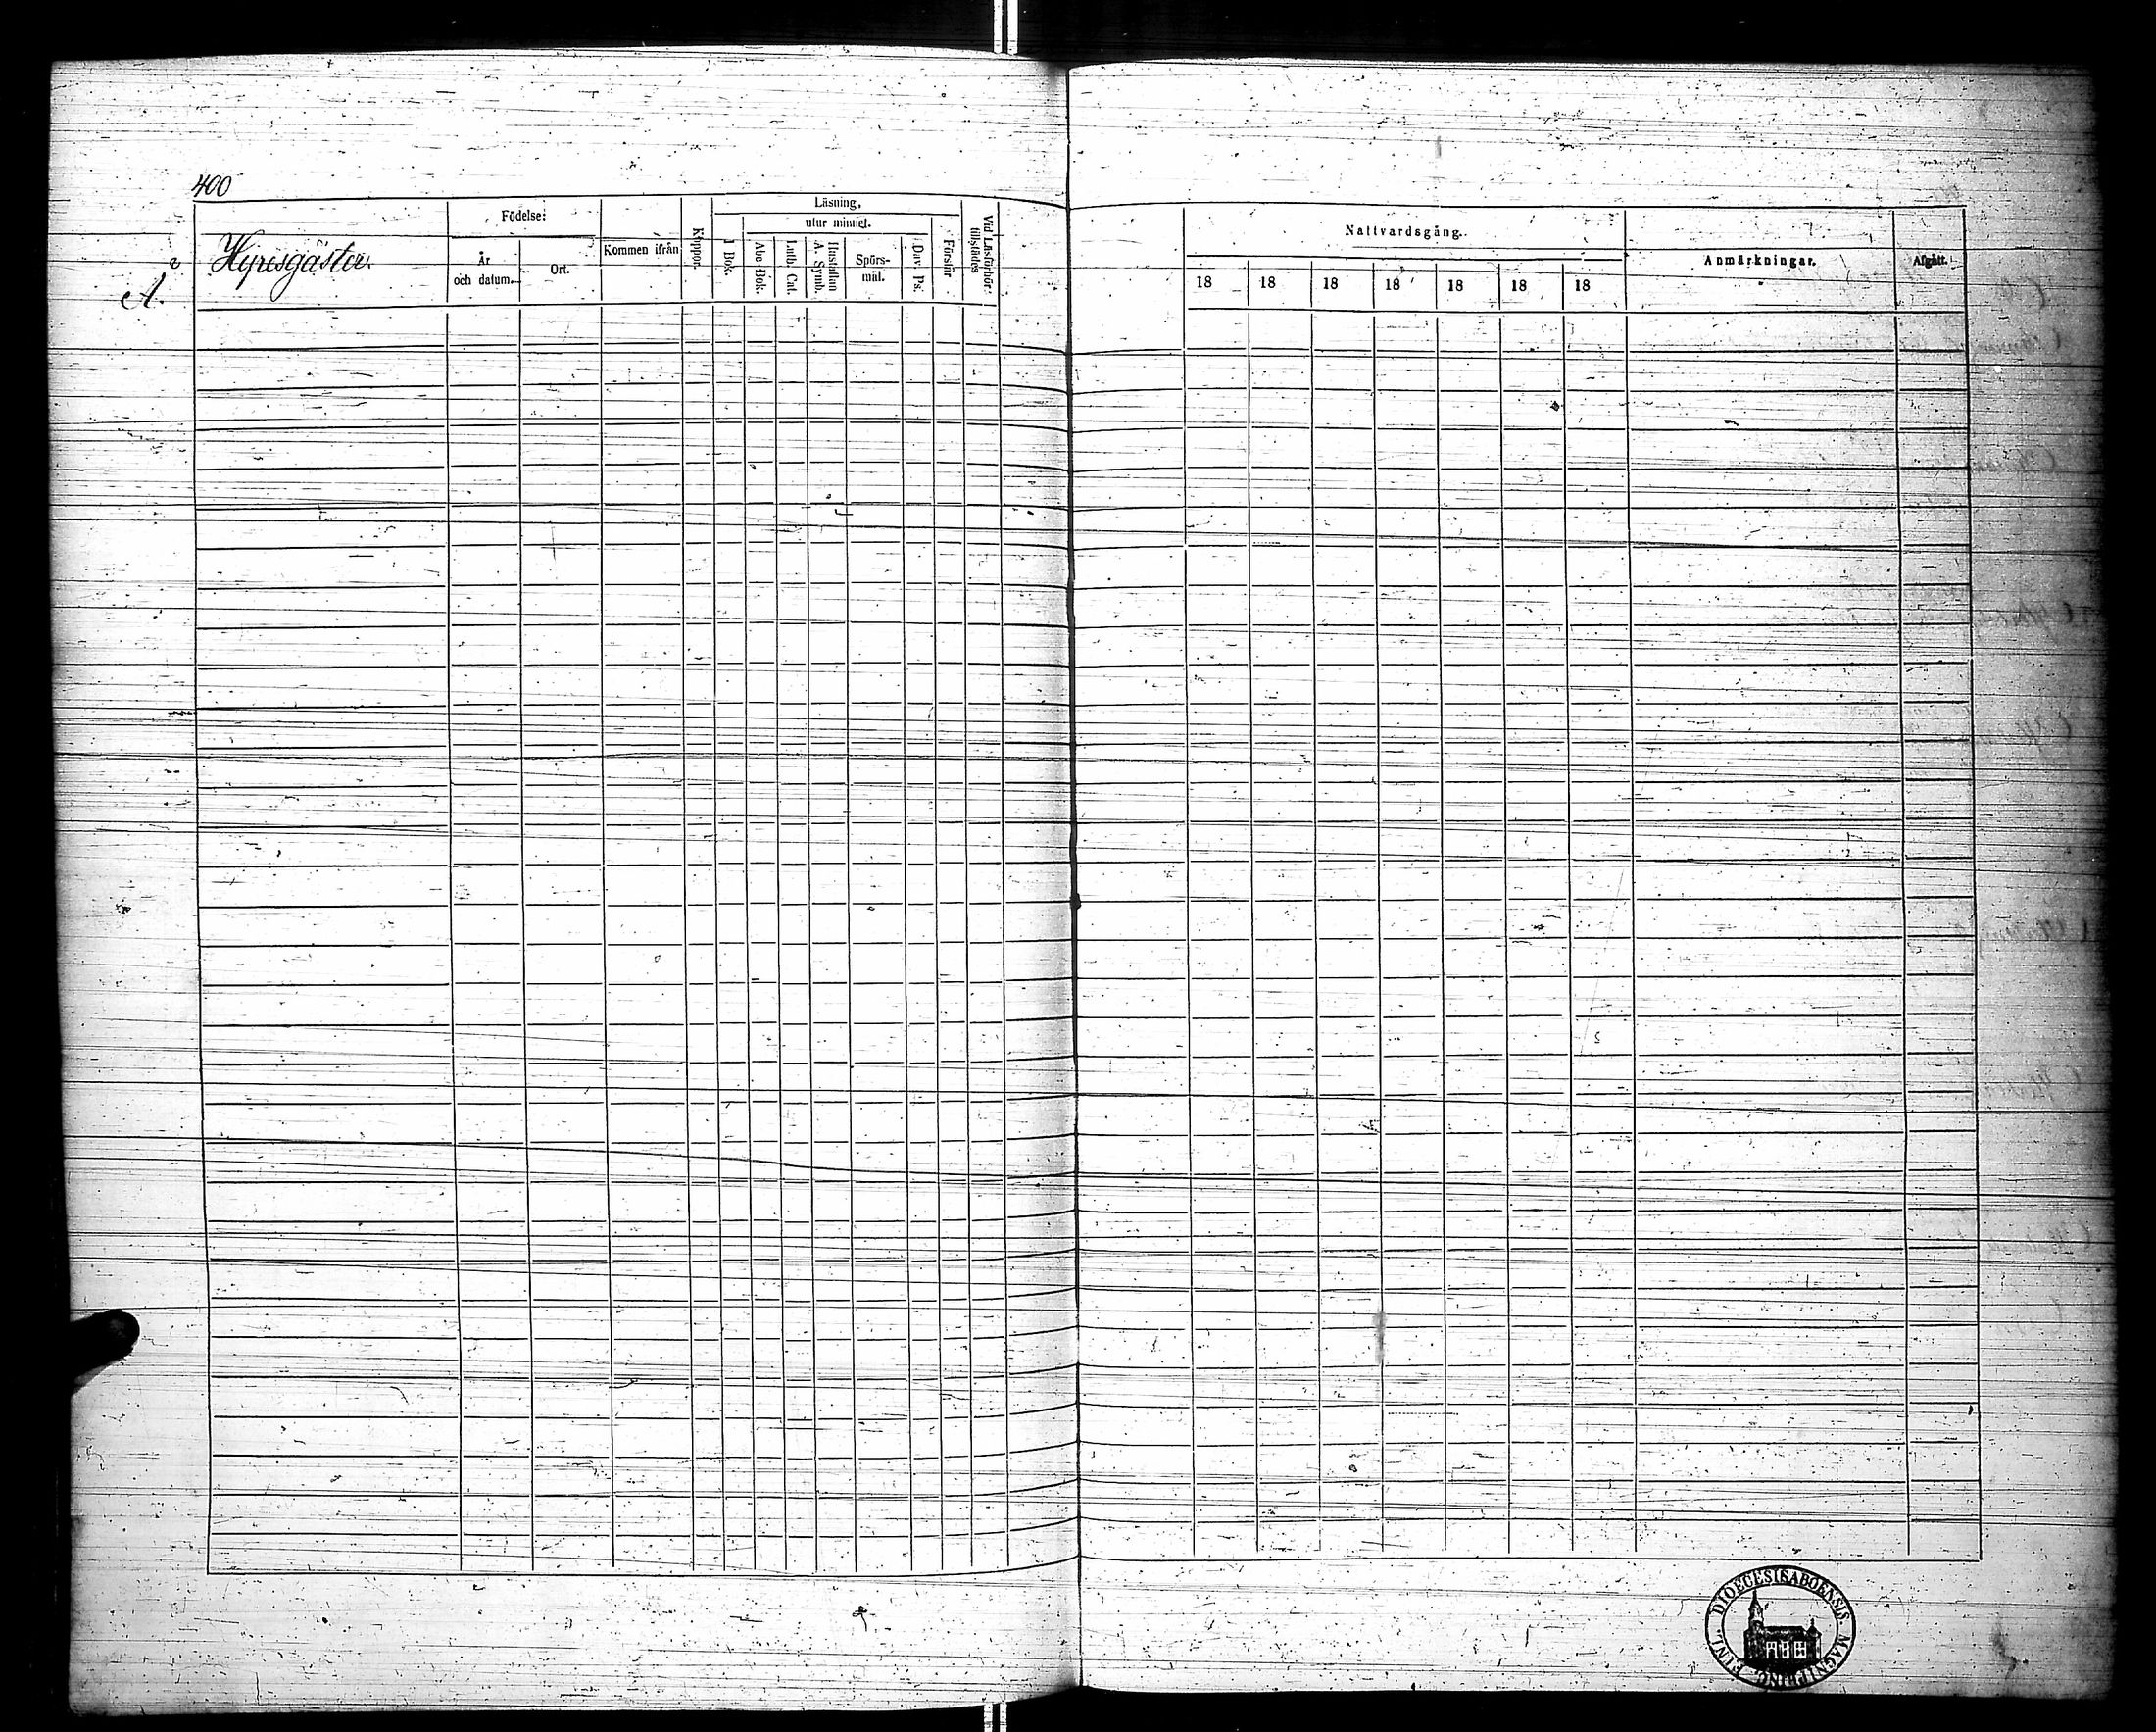 400
Hyresgäster.
A.
Födelse:
År
och datum.
Ort.
Kommen ifrån
Koppor.
Läsning,
utur minnet.
I Bok.
Abc-Bok.
Luth. Cat.
Hustaflan
A. Symb.
Spörs-
mål.
Dav. Ps.
Förstår
Vid Läsförhör:
tillstädes
Nattvardsgång.
18 18 18 18 18 18 18
Anmärkningar.
Afgått.
DIOECESIS ABOENSIS MAGNI PRINC. FINL.